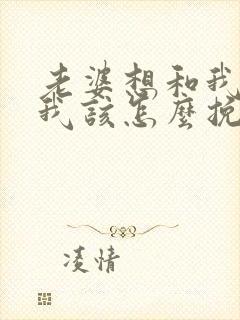 老婆想和我
我該怎麼挽
凌情